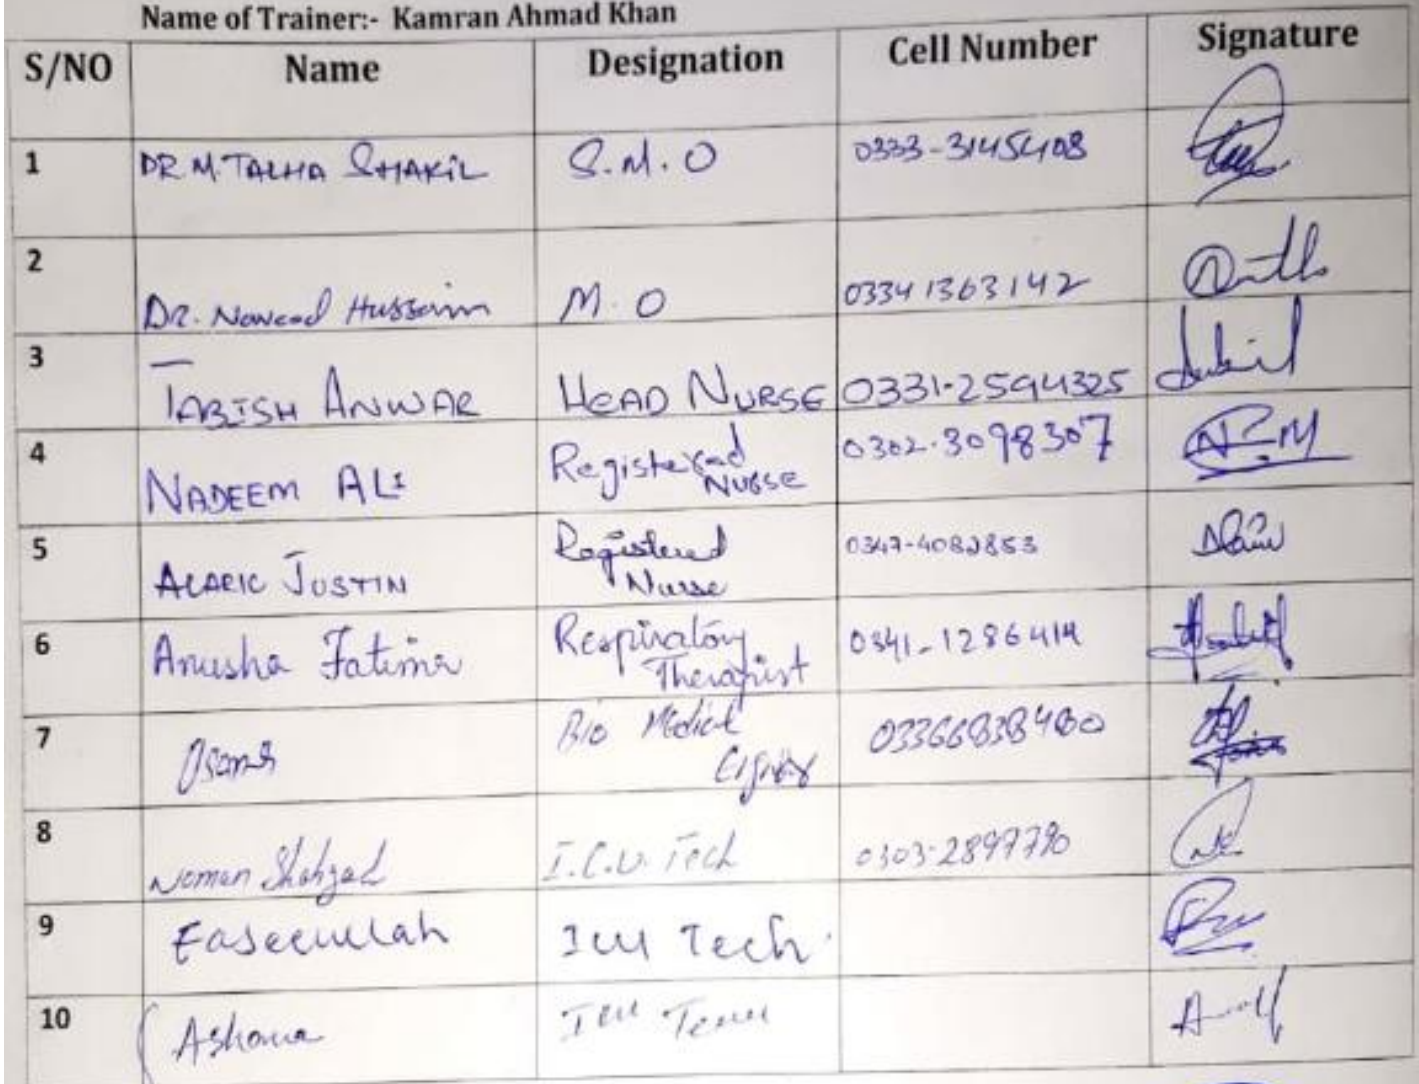 Name of Trainer:- Kamran Ahmad Khan
S/NO Name Designation Cell Number Signature
1 DR. M. TALHA SHAKIL S.M.O 0333-3145408
2 DR. Naveed Hussain M.O 03341363142
3 TABISH ANWAR HEAD NURSE 0331-2594325
4 NADEEM ALI Registered 0302-3098307
Nurse
5 ALARIC JUSTIN Registered 0347-4082853
Nurse
6 Anusha Fatima Respiratory 0341-1286414
Therapist
7 Osama Bio Medical 03366838480
8 Noman Shahzad I.C.U. Tech 0303-2897790
9 Faseeullah ICU Tech
10 ICU